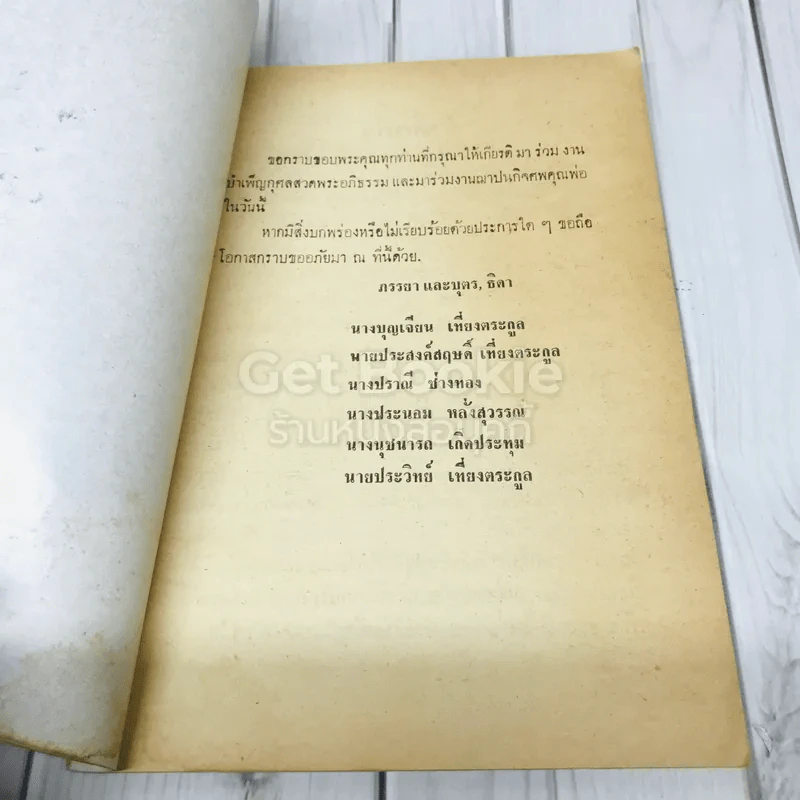 ขอกราบขอบพระคุณทุกท่านที่กรุณาให้เกียรติ มา ร่วม งาน
บำเพ็ญกุศลสวดพระอภิธรรม และมาร่วมงานฌาปนกิจศพคุณพ่อ
ในวันนี้
หากมีสิ่งบกพร่องหรือไม่เรียบร้อยด้วยประการใด ๆ ขอถือ
โอกาสกราบขออภัยมา ณ ที่นี้ด้วย.
ภรรยา และบุตร, ธิดา
นางบุญเจียน เที่ยงตระกูล
นายประสงค์สฤษดิ์ เที่ยงตระกูล
Get Bookie
นางปราณี ช่างทอง
นางประนอม หลั่งสุวรรณ
ร้านหนังสือบุคกี้
นางนุชนารถ เกิดประทุม
นายประวิทย์ เที่ยงตระกูล